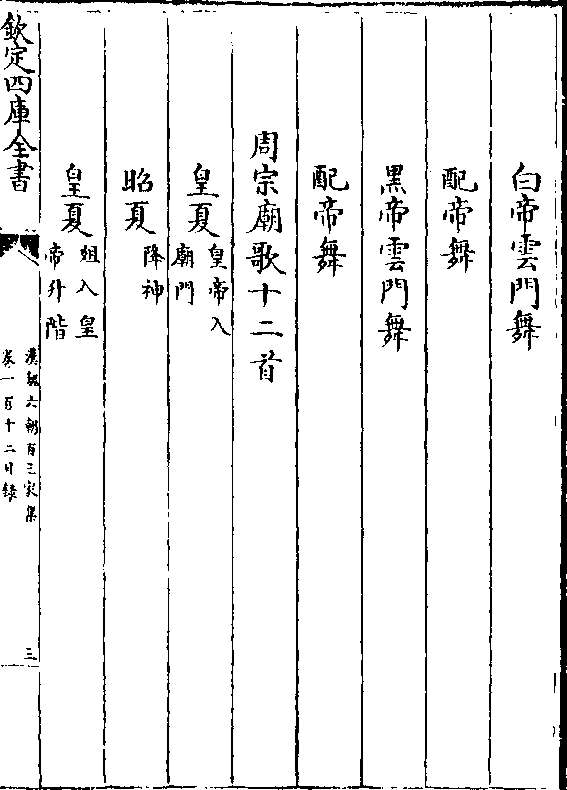 白帝雲門舞
配帝舞
黑帝雲門舞
配帝舞
周宗廟歌十二首
皇夏皇帝入廟門
昭夏降神
皇夏俎入皇帝升階
欽定四庫全書
漢魏六朝百三家集
卷一百十二目錄
三